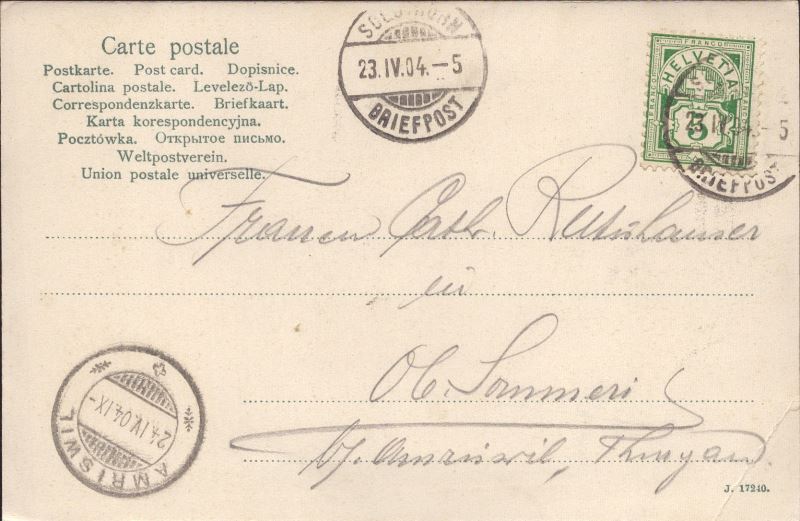 Carte postale
Postkarte. Post card. Dopisnice.
Cartolina postale. Levelező-Lap.
Correspondenzkarte. Briefkaart.
Karta korespondencyjna.
Pocztówka. Открытое письмо.
Weltpostverein.
Union postale universelle.
SOLOTHURN
23.IV.04.–5
BRIEFPOST
FRANCO
HELVETIA
3
23.IV.04.–5
BRIEFPOST
Frauen Cath. Rutishauser
in
Ob. Sommeri
b/. Amriswil, Thurgau.
24.IV.04.IX–
AMRISWIL
J. 17240.